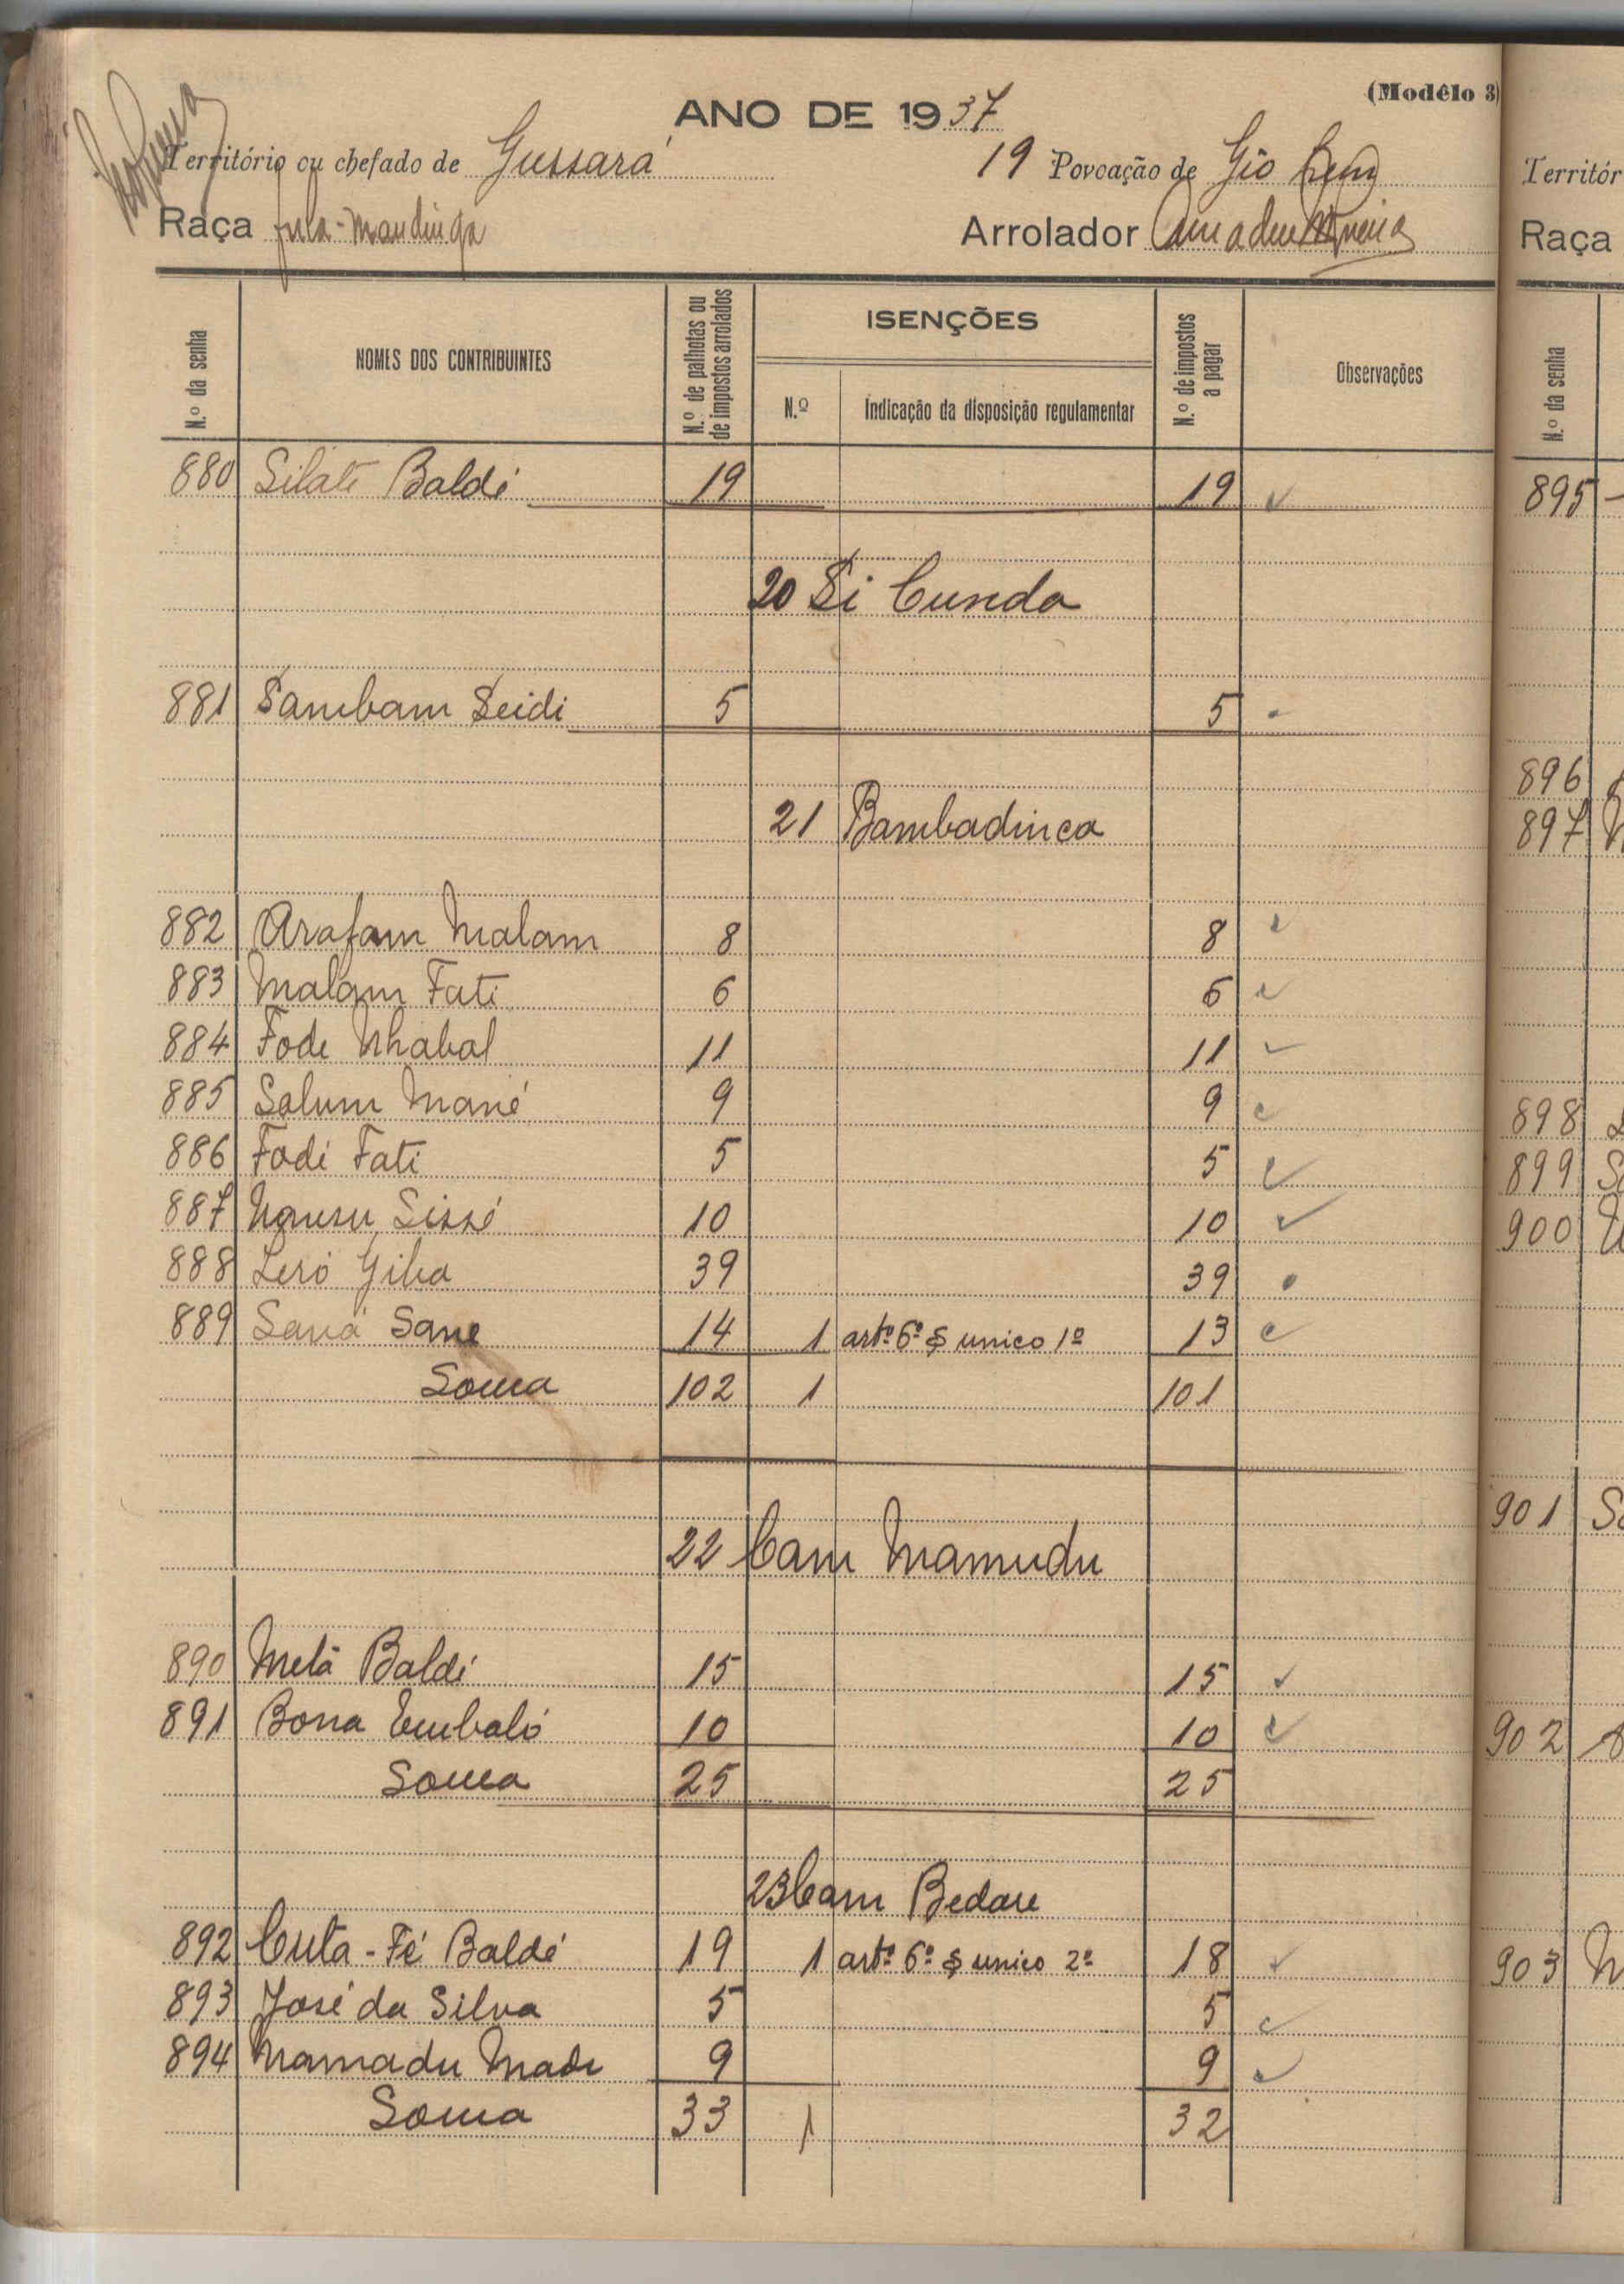 (Modêlo 3)
ANO DE 1937
Território ou chefado de Gussará 19 Povoação de Gio
Raça fula-mandinga Arrolador Amadeu
N.º da senha NOMES DOS CONTRIBUINTES N.º de palhotas ou de impostos arrolados ISENÇÕES N.º de impostos a pagar Observações
N.º Indicação da disposição regulamentar
880 Silati Baldé 19 19
20 Si Cunda
881 Sambam Seidi 5 5
21 Bambadinca
882 Arafam Malam 8 8
883 Malam Fati 6 6
884 Fode Nhabal 11 11
885 Salum Mané 9 9
886 Fodé Fati 5 5
887 Nausu Sissé 10 10
888 Leró Giba 39 39
889 Saná Sane 14 1 artº 6º § unico 1º 13
Soma 102 1 101
22 Cam Mamudu
890 Metá Baldé 15 15
891 Bona Embaló 10 10
Soma 25 25
23 Cam Bedare
892 Cuta-Fé Baldé 19 1 artº 6º § unico 2º 18
893 José da Silva 5 5
894 Mamadu Made 9 9
Soma 33 1 32
Territór
Raça
N.º da senha
895
896
897
898
899
900
901
902
903